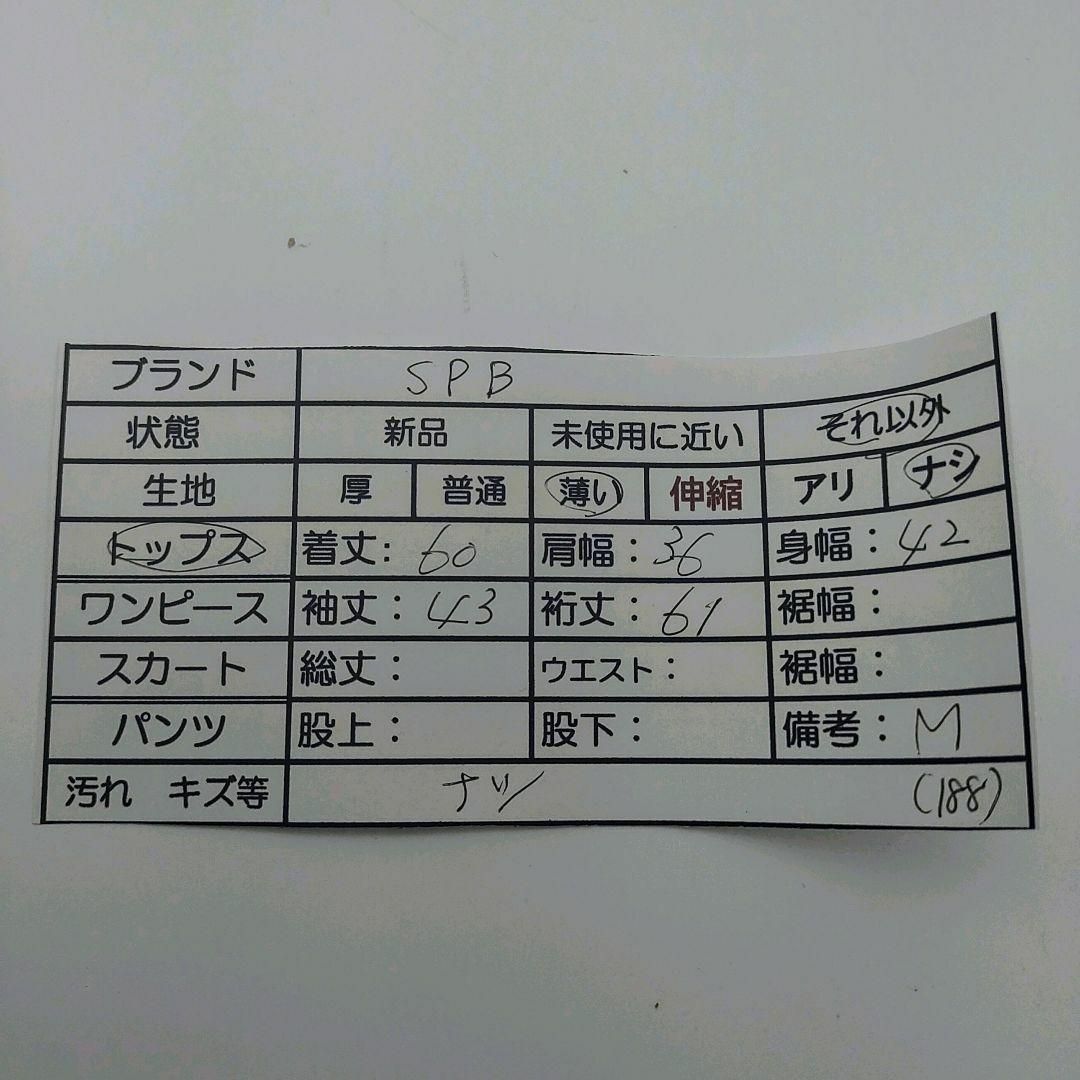 ブランド SPB
状態 新品 未使用に近い それ以外
生地 厚 普通 薄い 伸縮 アリ ナシ
トップス 着丈: 60 肩幅: 36 身幅: 42
ワンピース 袖丈: 43 裄丈: 61 裾幅:
スカート 総丈: ウエスト: 裾幅:
パンツ 股上: 股下: 備考: M
汚れ キズ等 ナシ (188)